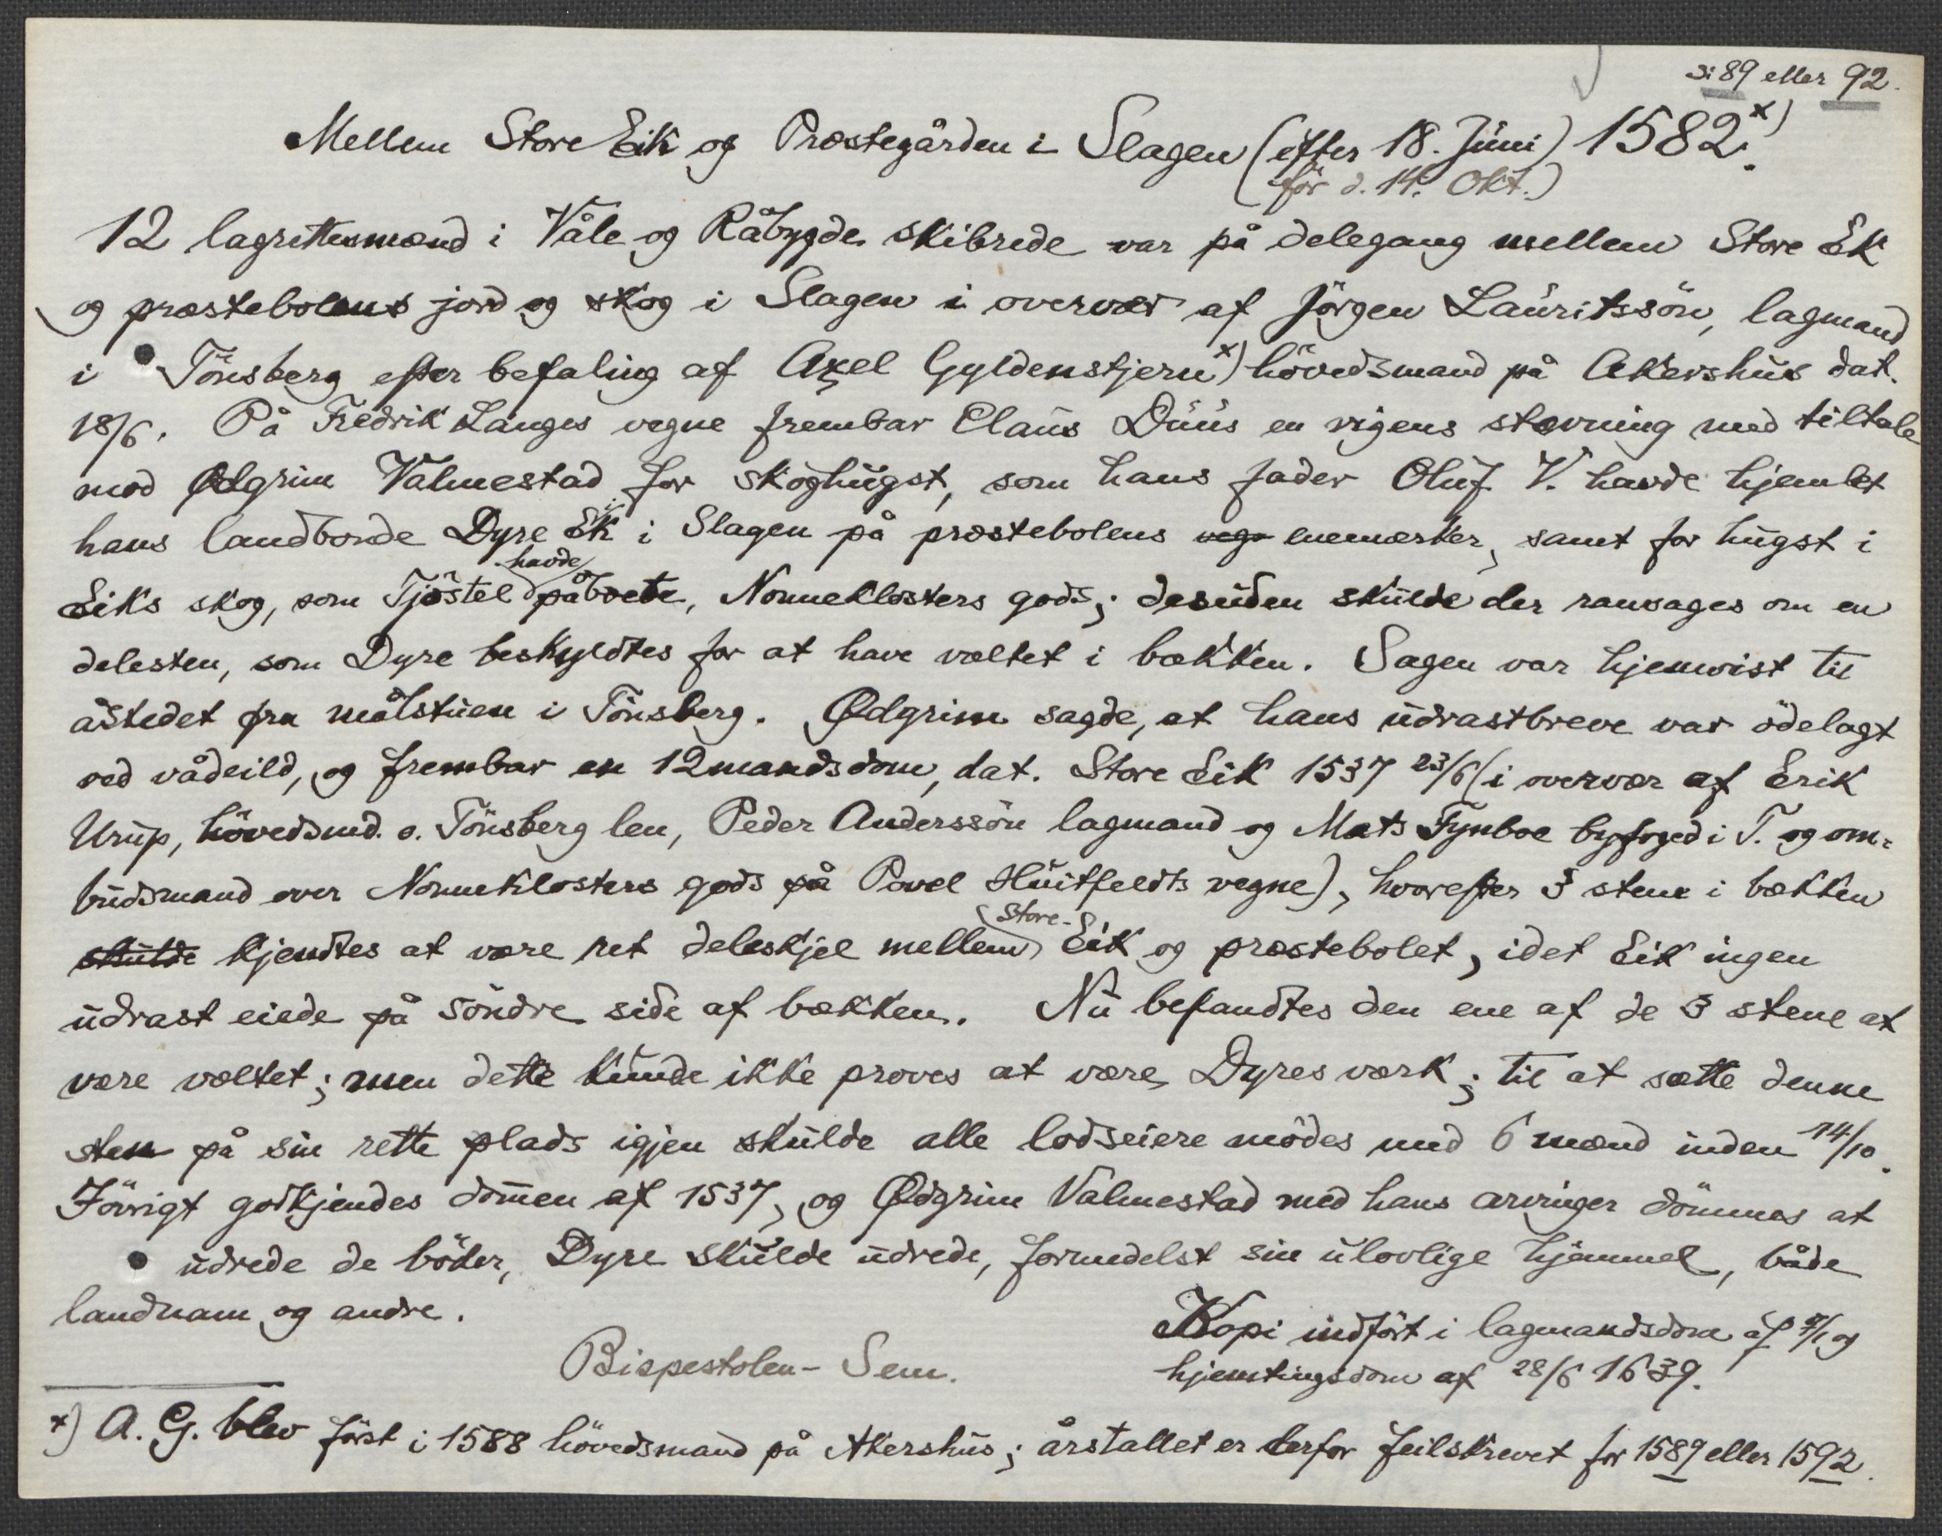 ɔ: 89 eller 92.
Mellem Store Eik og Præstegården i Slagen (efter 18. Juni) 1582.x)
(för d. 14. Okt.)
12 lagrettesmænd i Våle og Råbygde skibrede var på delegang mellem Store Ek
og præstebolens jord og skog i Slagen i overvær af Jörgen Lauritssön, lagmand
i Tönsberg efter befaling af Axel Gyldenstjern x) hövedsmand på Akershus dat.
18/6. På Fredrik Langes vegne frembar Claus Duus en rigens stævning med tiltale
mod Ødgrim Valmestad for skoghugst, som hans fader Oluf V. havde hjemlet
hans landbonde Dyre Ek i Slagen på præstebolens enemærker, samt for hugst i
Eiks skog, som Tjöstel havde påboete, Nonneklosters gods; desuden skulde der ransages om en
delesten, som Dyre beskyldtes for at have væltet i bækken. Sagen var hjemvist til
åstedet fra målstuen i Tönsberg. Ødgrim sagde, at hans udrastbreve var ödelagt
ved vådeild, og frembar en 12mandsdom, dat. Store Eik 1537 23/6 (i overvær af Erik
Urup, hövedsmd. o. Tönsberg len, Peder Anderssön lagmand og Mats Fynboe byfoged i T. og om-
budsmand over Nonneklosters gods på Povel Huitfeldts vegne), hvorefter 3 stene i bækken
skulde kjendtes at være ret deleskjel mellem Store- Eik og præstebolet, idet Eik ingen
udrast eiede på söndre side af bækken. Nu befandtes den ene af de 3 stene at
være væltet; men dette kunde ikke proves at være Dyres værk; til at sætte denne
sten på sin rette plads igjen skulde alle lodseiere mödes med 6 mænd inden 14/10.
Iövrigt godkjendes dommen af 1537, og Ødgrim Valmestad med hans arvinger dömmes at
udrede de böder, Dyre skulde udrede, formedelst sin ulovlige hjemmel, både
landnam og andre.
Kopi indfört i lagmandsdom af og
hjemtingsdom af 28/6 1639.
Bispestolen - Sem.
x) A. G. blev först i 1588 hövedsmand på Akershus; årstallet er derfor feilskrevet for 1589 eller 1592.